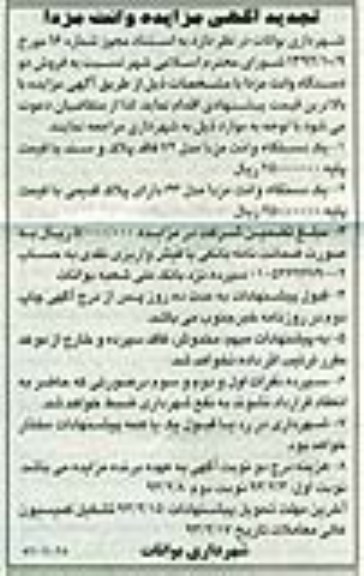 تجدید آگهی مزایده وانت مزدا
شهرداری بوانات در نظر دارد به استناد مجوز شماره ۱۶ مورخ
شورای محترم اسلامی شهر نسبت به فروش دو
دستگاه وانت مزدا با مشخصات ذیل از طریق آگهی مزایده با
بالاترین قیمت پیشنهادی اقدام نماید لذا از متقاضیان دعوت
می شود با توجه به موارد ذیل به شهرداری مراجعه نمایند.
۱- یک دستگاه وانت مزدا مدل فاقد پلاک و سند با قیمت
پایه ریال
۲- یک دستگاه وانت مزدا مدل دارای پلاک قدیمی با قیمت
پایه ریال
۳- مبلغ تضمین شرکت در مزایده ریال به
صورت ضمانت نامه بانکی یا فیش واریزی نقدی به حساب
سپرده نزد بانک ملی شعبه بوانات
۴- قبول پیشنهادات به مدت ده روز پس از درج آگهی چاپ
دوم در روزنامه خبرجنوب می باشد.
۵- به پیشنهادات مبهم، مخدوش، فاقد سپرده و خارج از موعد
مقرر ترتیب اثر داده نخواهد شد.
۶- سپرده نفرات اول و دوم و سوم درصورتی که حاضر به
انعقاد قرارداد نشوند به نفع شهرداری ضبط خواهد شد.
۷- شهرداری در رد یا قبول یک یا همه پیشنهادات مختار
خواهد بود.
۸- هزینه درج دو نوبت آگهی به عهده برنده مزایده می باشد.
نوبت اول: نوبت دوم:
آخرین مهلت تحویل پیشنهادات تشکیل کمیسیون
عالی معاملات تاریخ
شهرداری بوانات